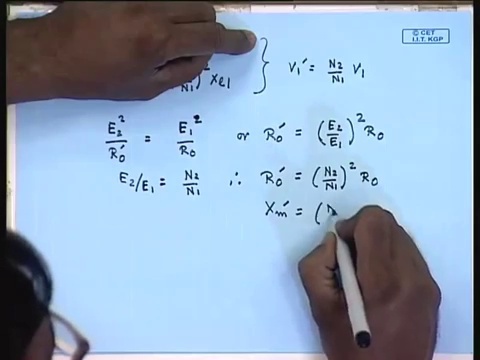 © CET
I.I.T. KGP
N1)² Xe1 } V1' = N2/N1 V1
E2²/R0' = E1²/R0 or R0' = (E2/E1)² R0
E2/E1 = N2/N1 ∴ R0' = (N2/N1)² R0
Xm' = (